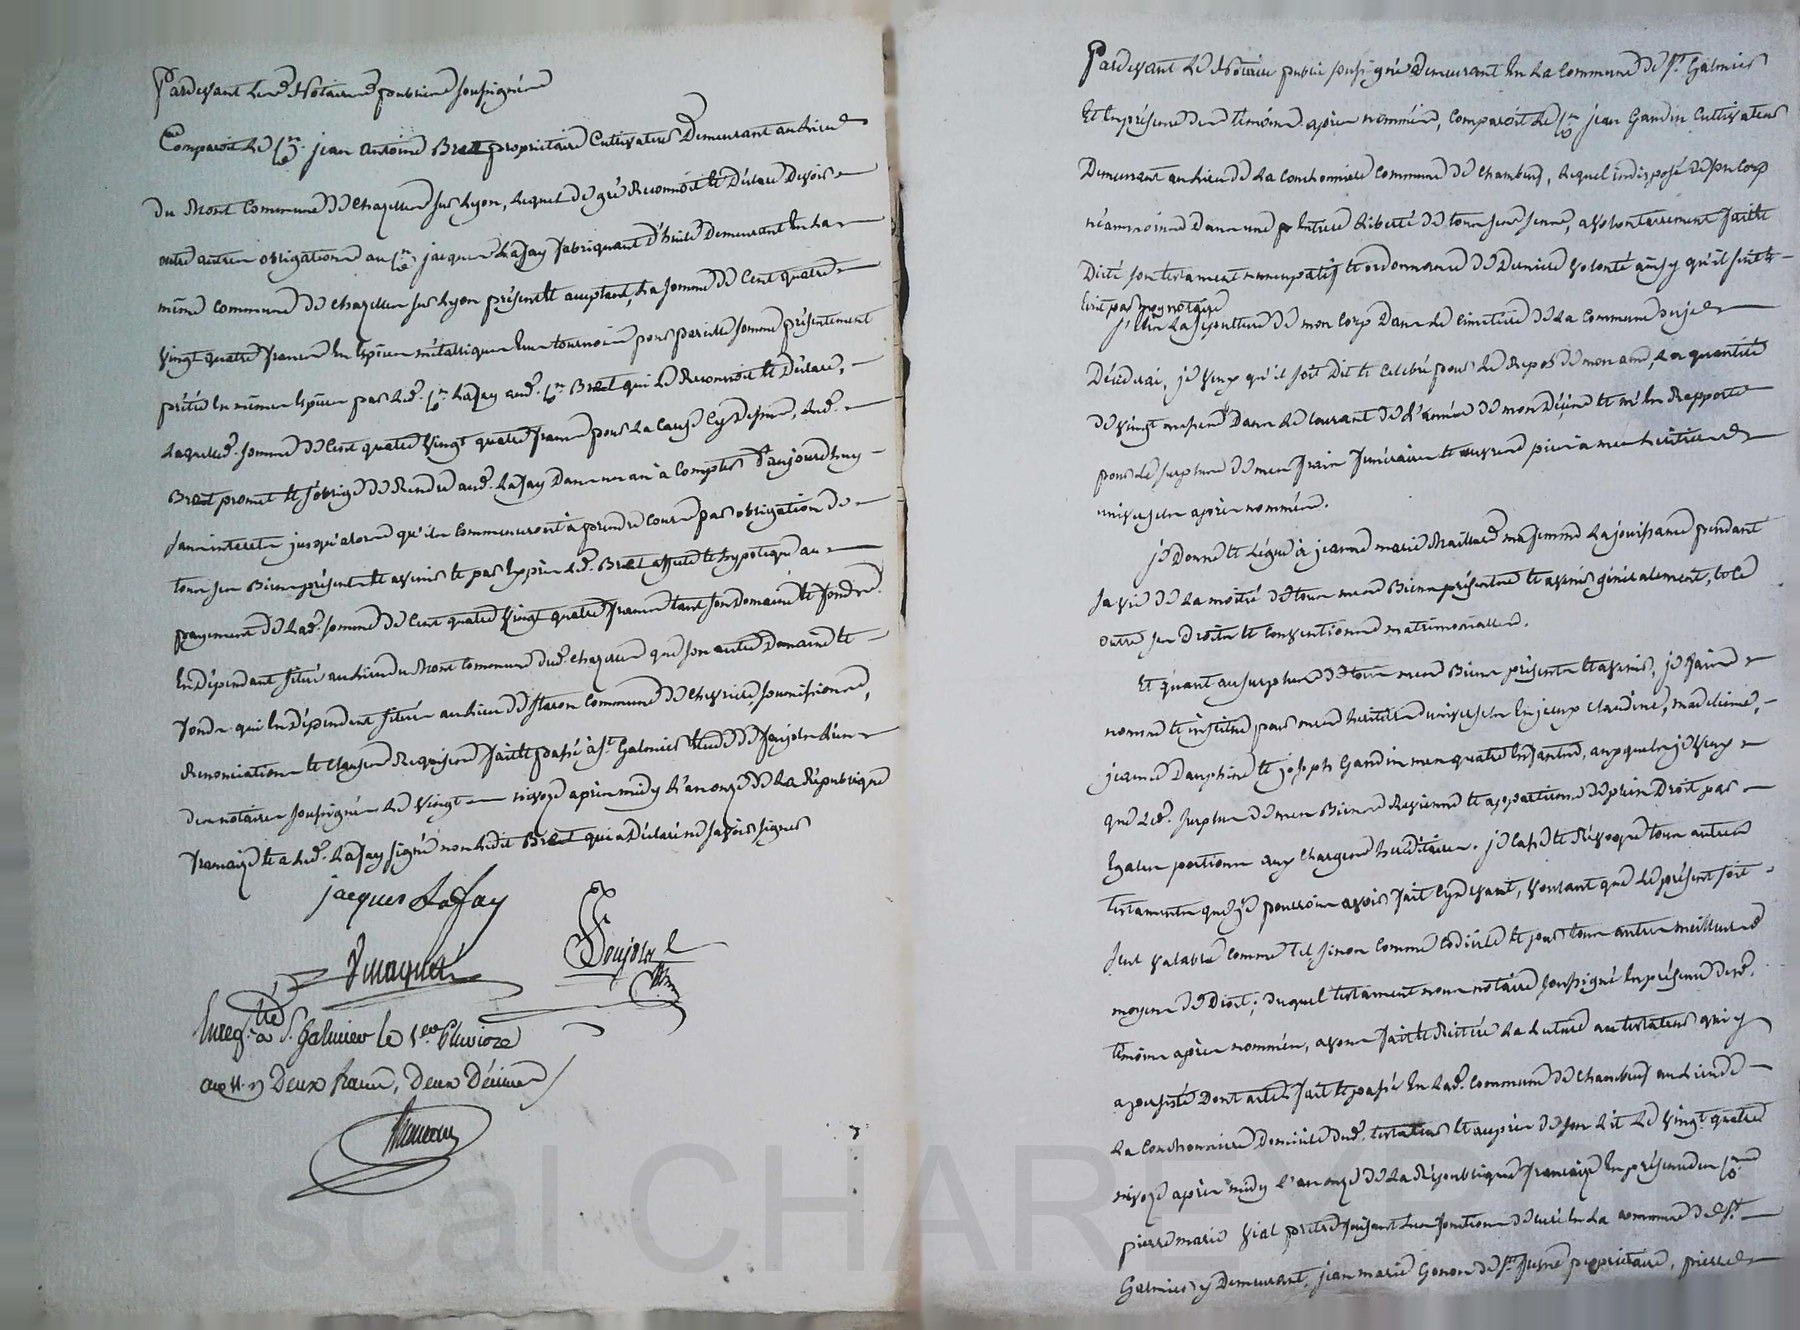 Pardevant les Notaires publics soussignés
Comparoit le Cen. jean antoine Brat propriétaire Cultivateur Demeurant au lieu
du Mont Commune de Chazelles sur Lyon, lequel de gré Reconnoit et Déclare Devoir
outre autres obligations au Cen jacques Lafay fabriquant d'huile Demeurant en la
même commune de Chazelles sur Lyon présent et acceptant la somme de Cent quatre
vingt quatre francs en espèces métalliques tournois pour pareille somme présentement
prêtée en mêmes espèces par led. Cen Lafay aud. Cen Brat qui le Reconnoit et Déclare,
Laquelle somme de Cent quatre vingt quatre francs pour la cause cy dessus, led.
Brat promet et s'oblige de Rendre aud. Lafay Dans un an à Compter D'aujourdhuy
sans interets jusqu'alors qu'ils Commenceront à prendre cours par obligation de
tous ses Biens présents et avenir et par exprès led. Brat affecte et hypotèque au
payement de lad. somme de Cent quatre vingt quatre francs tant son Domaine et fonds
En Dépendant situé au lieu du Mont Commune dud. Chazelles que son autre Domaine et
fonds qui en Dépendent situés au lieu de Commune de Chevrières, soumissions,
Renonciations et clauses Requises fait et passé à St. Galmier étude de foujols l'un
des notaires soussignés le vingt nivose après midy l'an onze de la République
française et a led. Lafay signé non ledit Brat qui a Déclaré ne savoir signer
jacques Lafay
foujols
Enreg. à St. Galmier le 1er Pluviose
an 11. Deux francs, deux Décimes
Pardevant le Notaire public soussigné Demeurant En la Commune de St. Galmier
Et En présence des témoins après nommés, comparoit le Cen jean Gandin Cultivateur
Demeurant au lieu de La Conchonnière commune de Chambeuf, lequel indisposé de son Corp
néanmoins Dans une Entière Liberté de tous ses sens, a volontairement fait et
Dicté son testament nuncupatif et ordonnance de Dernière volonté ainsy qu'il suit
Ecrit par moy notaire
j'élis la sépulture de mon Corp Dans le Cimetière de la Commune ou je
Décéderai, je veux qu'il soit Dit et Célébré pour le Repos de mon ame, la quantité
de vingt messes Dans le courant de l'année de mon Décès et m'en Rapporte
pour le surplus de mes frais funéraires et œuvres pies à mes héritiers
universels après nommés.
je Donne et Lègue à jeanne marie Maillard ma femme la jouissance pendant
sa vie de la moitié de tous mes Biens présents et avenir généralement, et ce
outre ses Droits et Conventions matrimoniales.
Et quant au surplus de tous mes Biens présents et avenir, je fais
nomme et institue pour mes héritiers universels Claudine, madeleine,
jeanne Dauphine et joseph Gandin mes quatre Enfants, auxquels je veux
que led. surplus de mes Biens Revienne et appartienne de plein Droit par
Egales portions aux charges héréditaires. je Casse et Révoque tous autres
testaments que je pourrois avoir fait cy devant, voulant que le présent soit
seul valable comme tel, sinon comme codicile et par tous autres meilleurs
moyens de Droit; duquel testament nous notaire soussigné En présence desd.
témoins après nommés, avons fait et Réitéré la Lecture au testateur qui y
a persisté Dont acte, fait et passé En lad. commune de Chambeuf au lieu de
La Conchonnière Domicile dud. testateur et auprès de son Lit le vingt quatre
nivose après midy l'an onze de la République française En présence des Cens
pierre marie vial prêtre faisant les fonctions de curé En la commune de St.
Galmier y Demeurant, jean marie Gonon de propriétaire, pierre